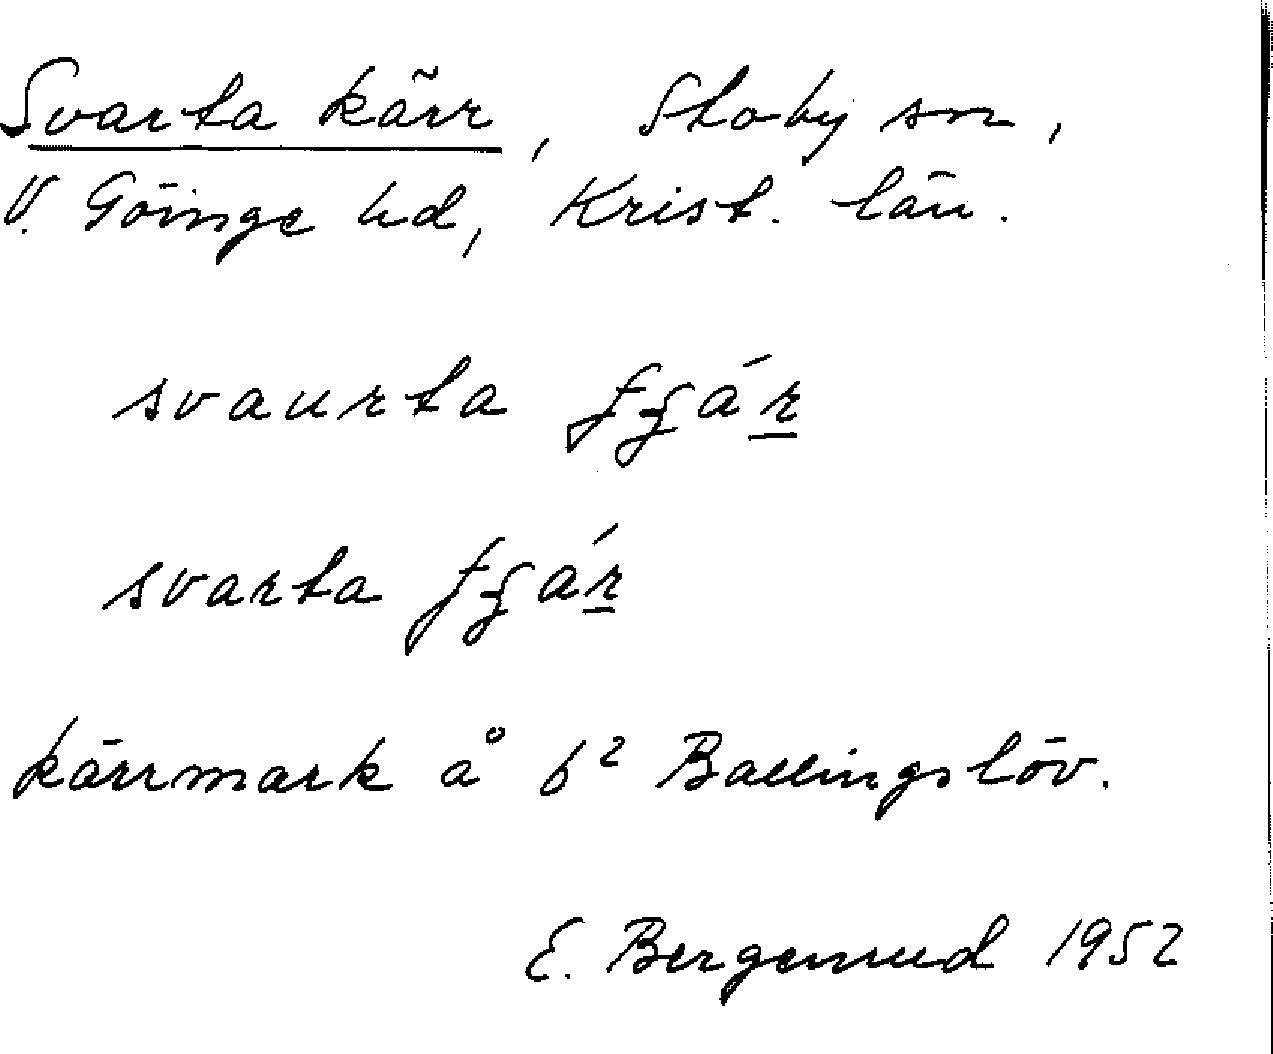 Svarta kärr, Stoby sn,
V. Göinge hd, Krist. län.
svaurta
svarta
kärrmark å 6² Ballingslöv.
E. Bergemud 1952